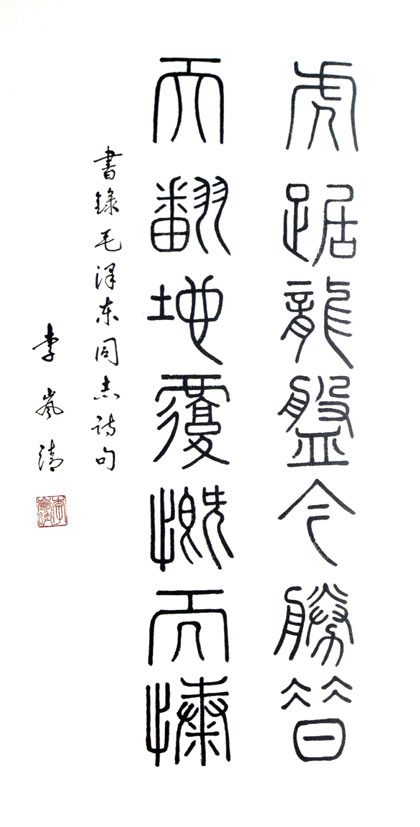 虎踞龍盤今勝昔
天翻地覆慨而慷
書錄毛澤東同志詩句
李嵐清